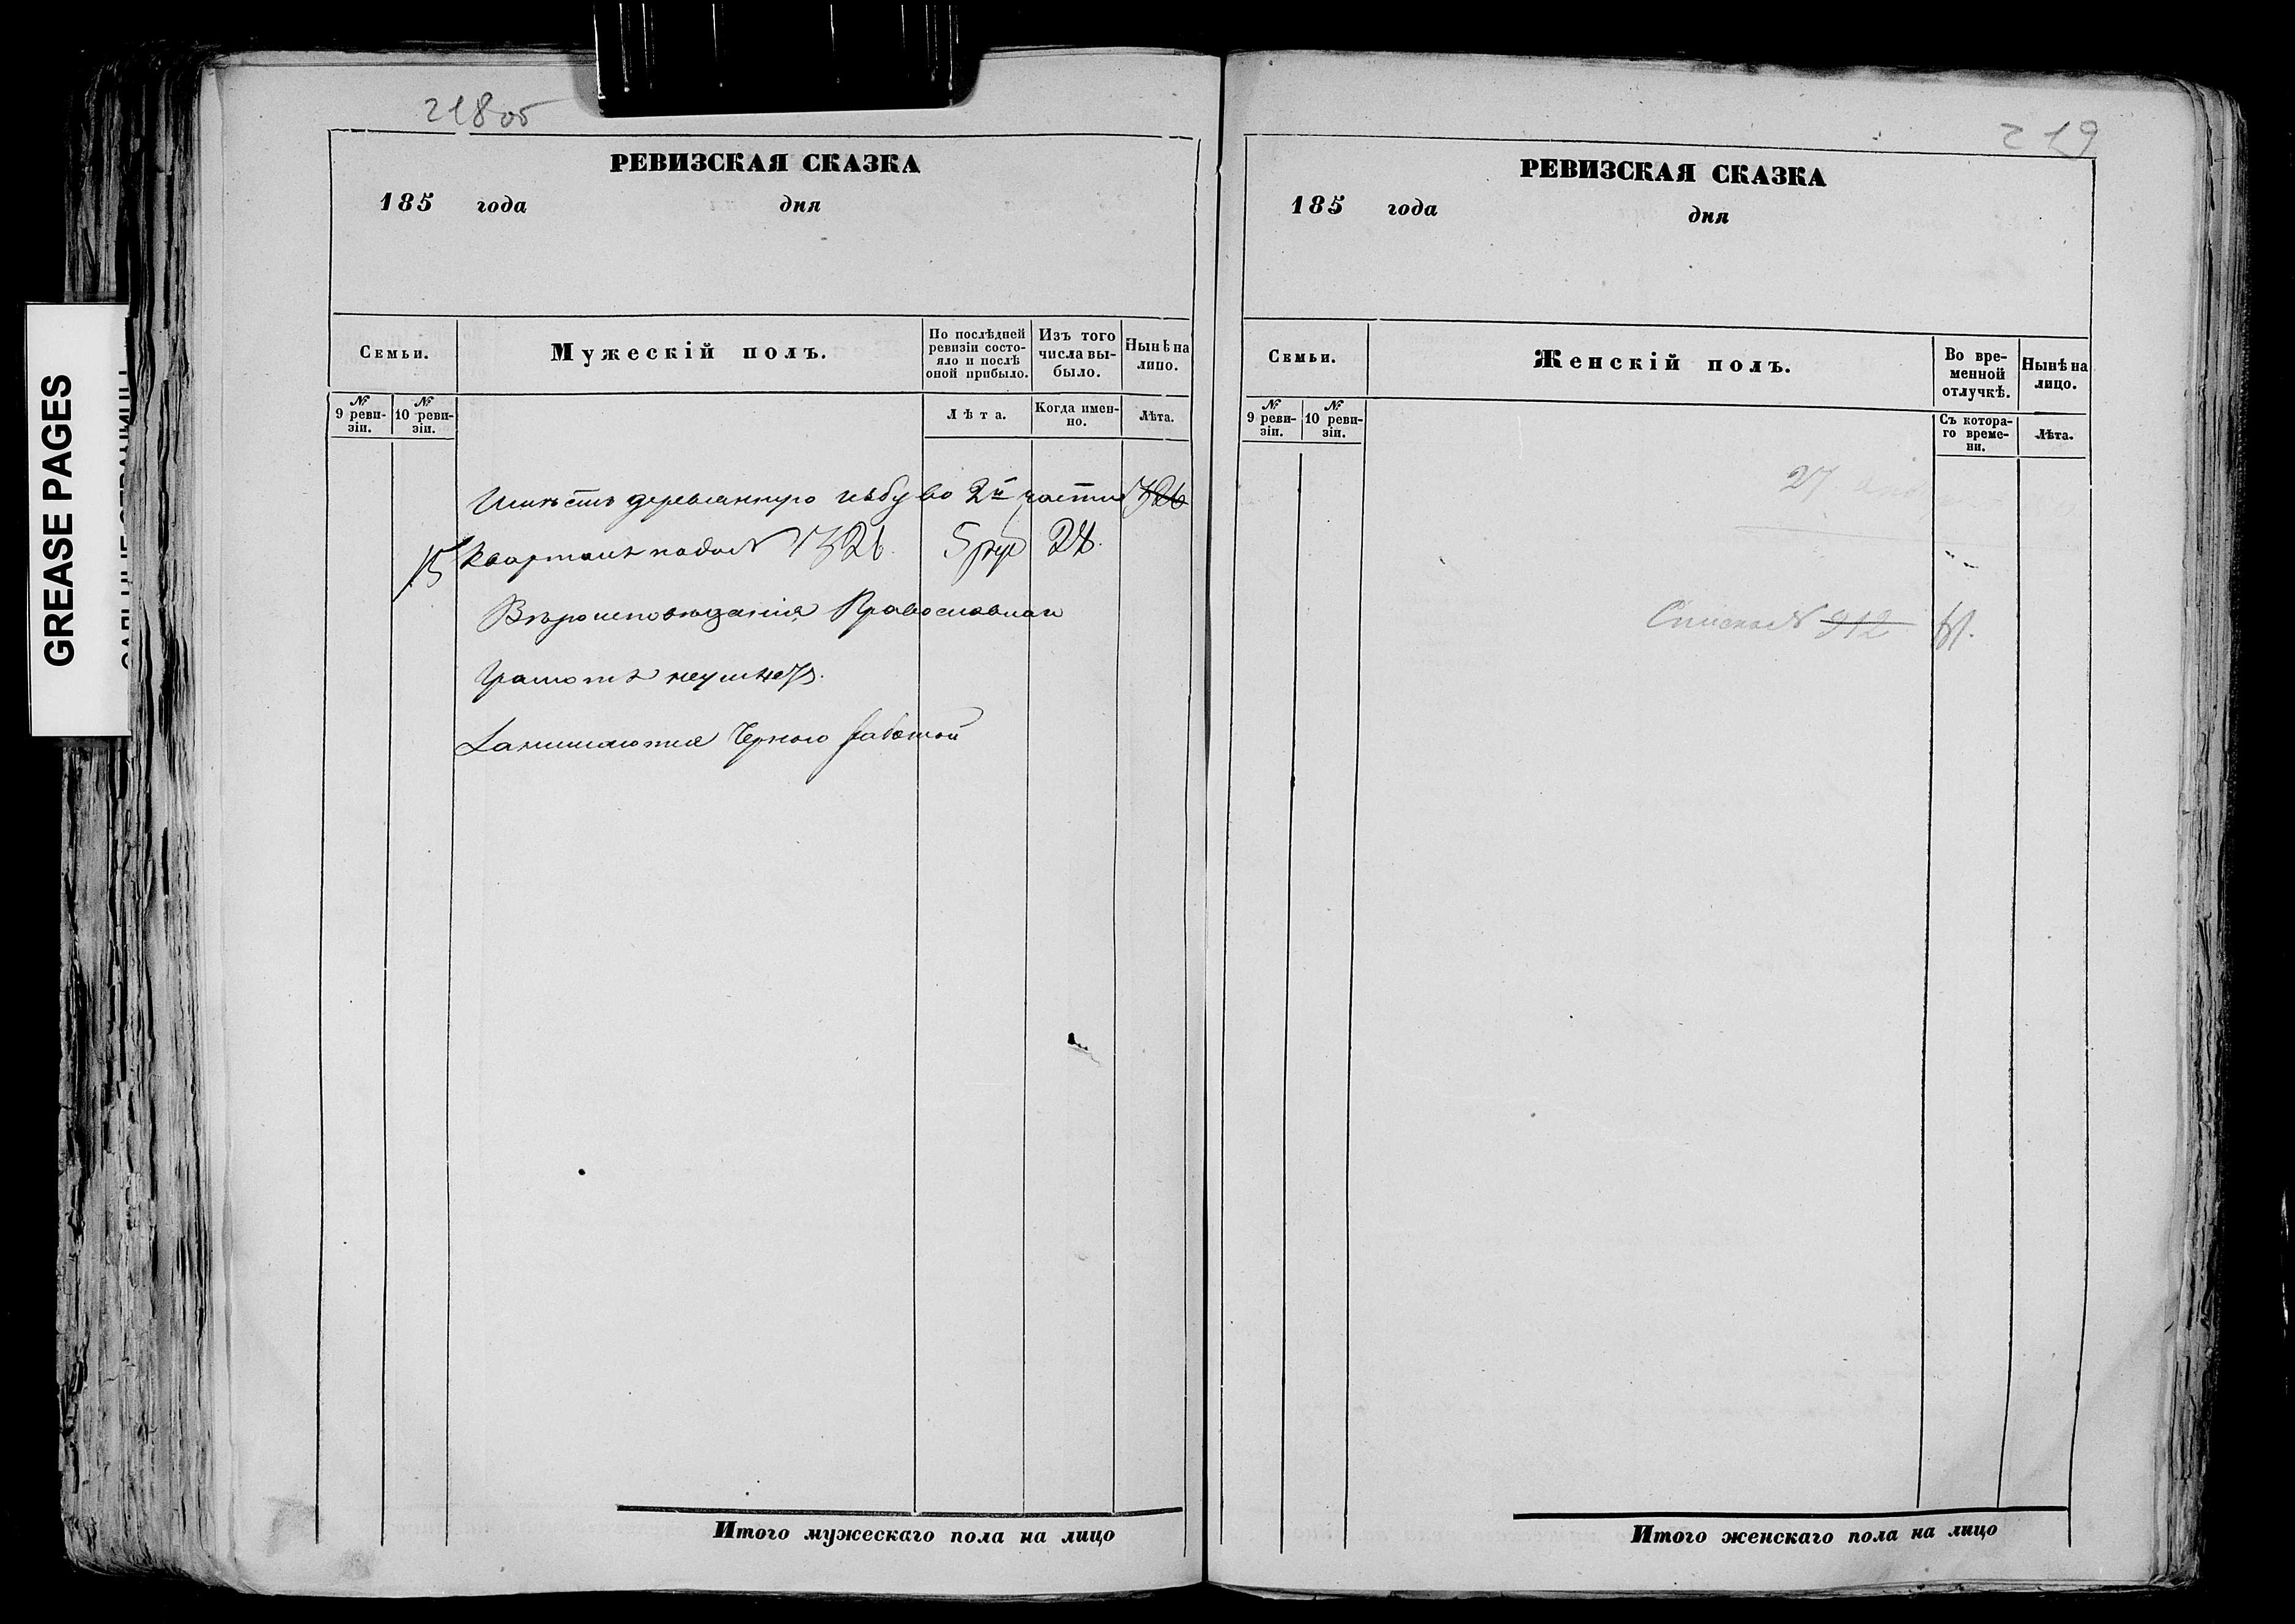 GREASE PAGES
218 об
РЕВИЗСКАЯ СКАЗКА
185 года дня
Семьи.
Мужескій полъ.
По послѣдней ревизіи состояло и послѣ оной прибыло.
Изъ того числа выбыло.
Нынѣ на лицо.
№ 9 ревизіи.
№ 10 ревизіи.
Лѣта.
Когда именно.
Лѣта.
Имѣетъ деревянную избу во 2й части 1326
15 Кварталѣ подъ № 1326. 5 руб 28.
Вѣроисповѣданія Православнаго
Грамотѣ неумѣетъ.
Занимается Черною работой
Итого мужескаго пола на лицо
219
РЕВИЗСКАЯ СКАЗКА
185 года дня
Семьи.
Женскій полъ.
Во временной отлучкѣ.
Нынѣ на лицо.
№ 9 ревизіи.
№ 10 ревизіи.
Съ котораго времени.
Лѣта.
27
Списка № 912
Итого женскаго пола на лицо